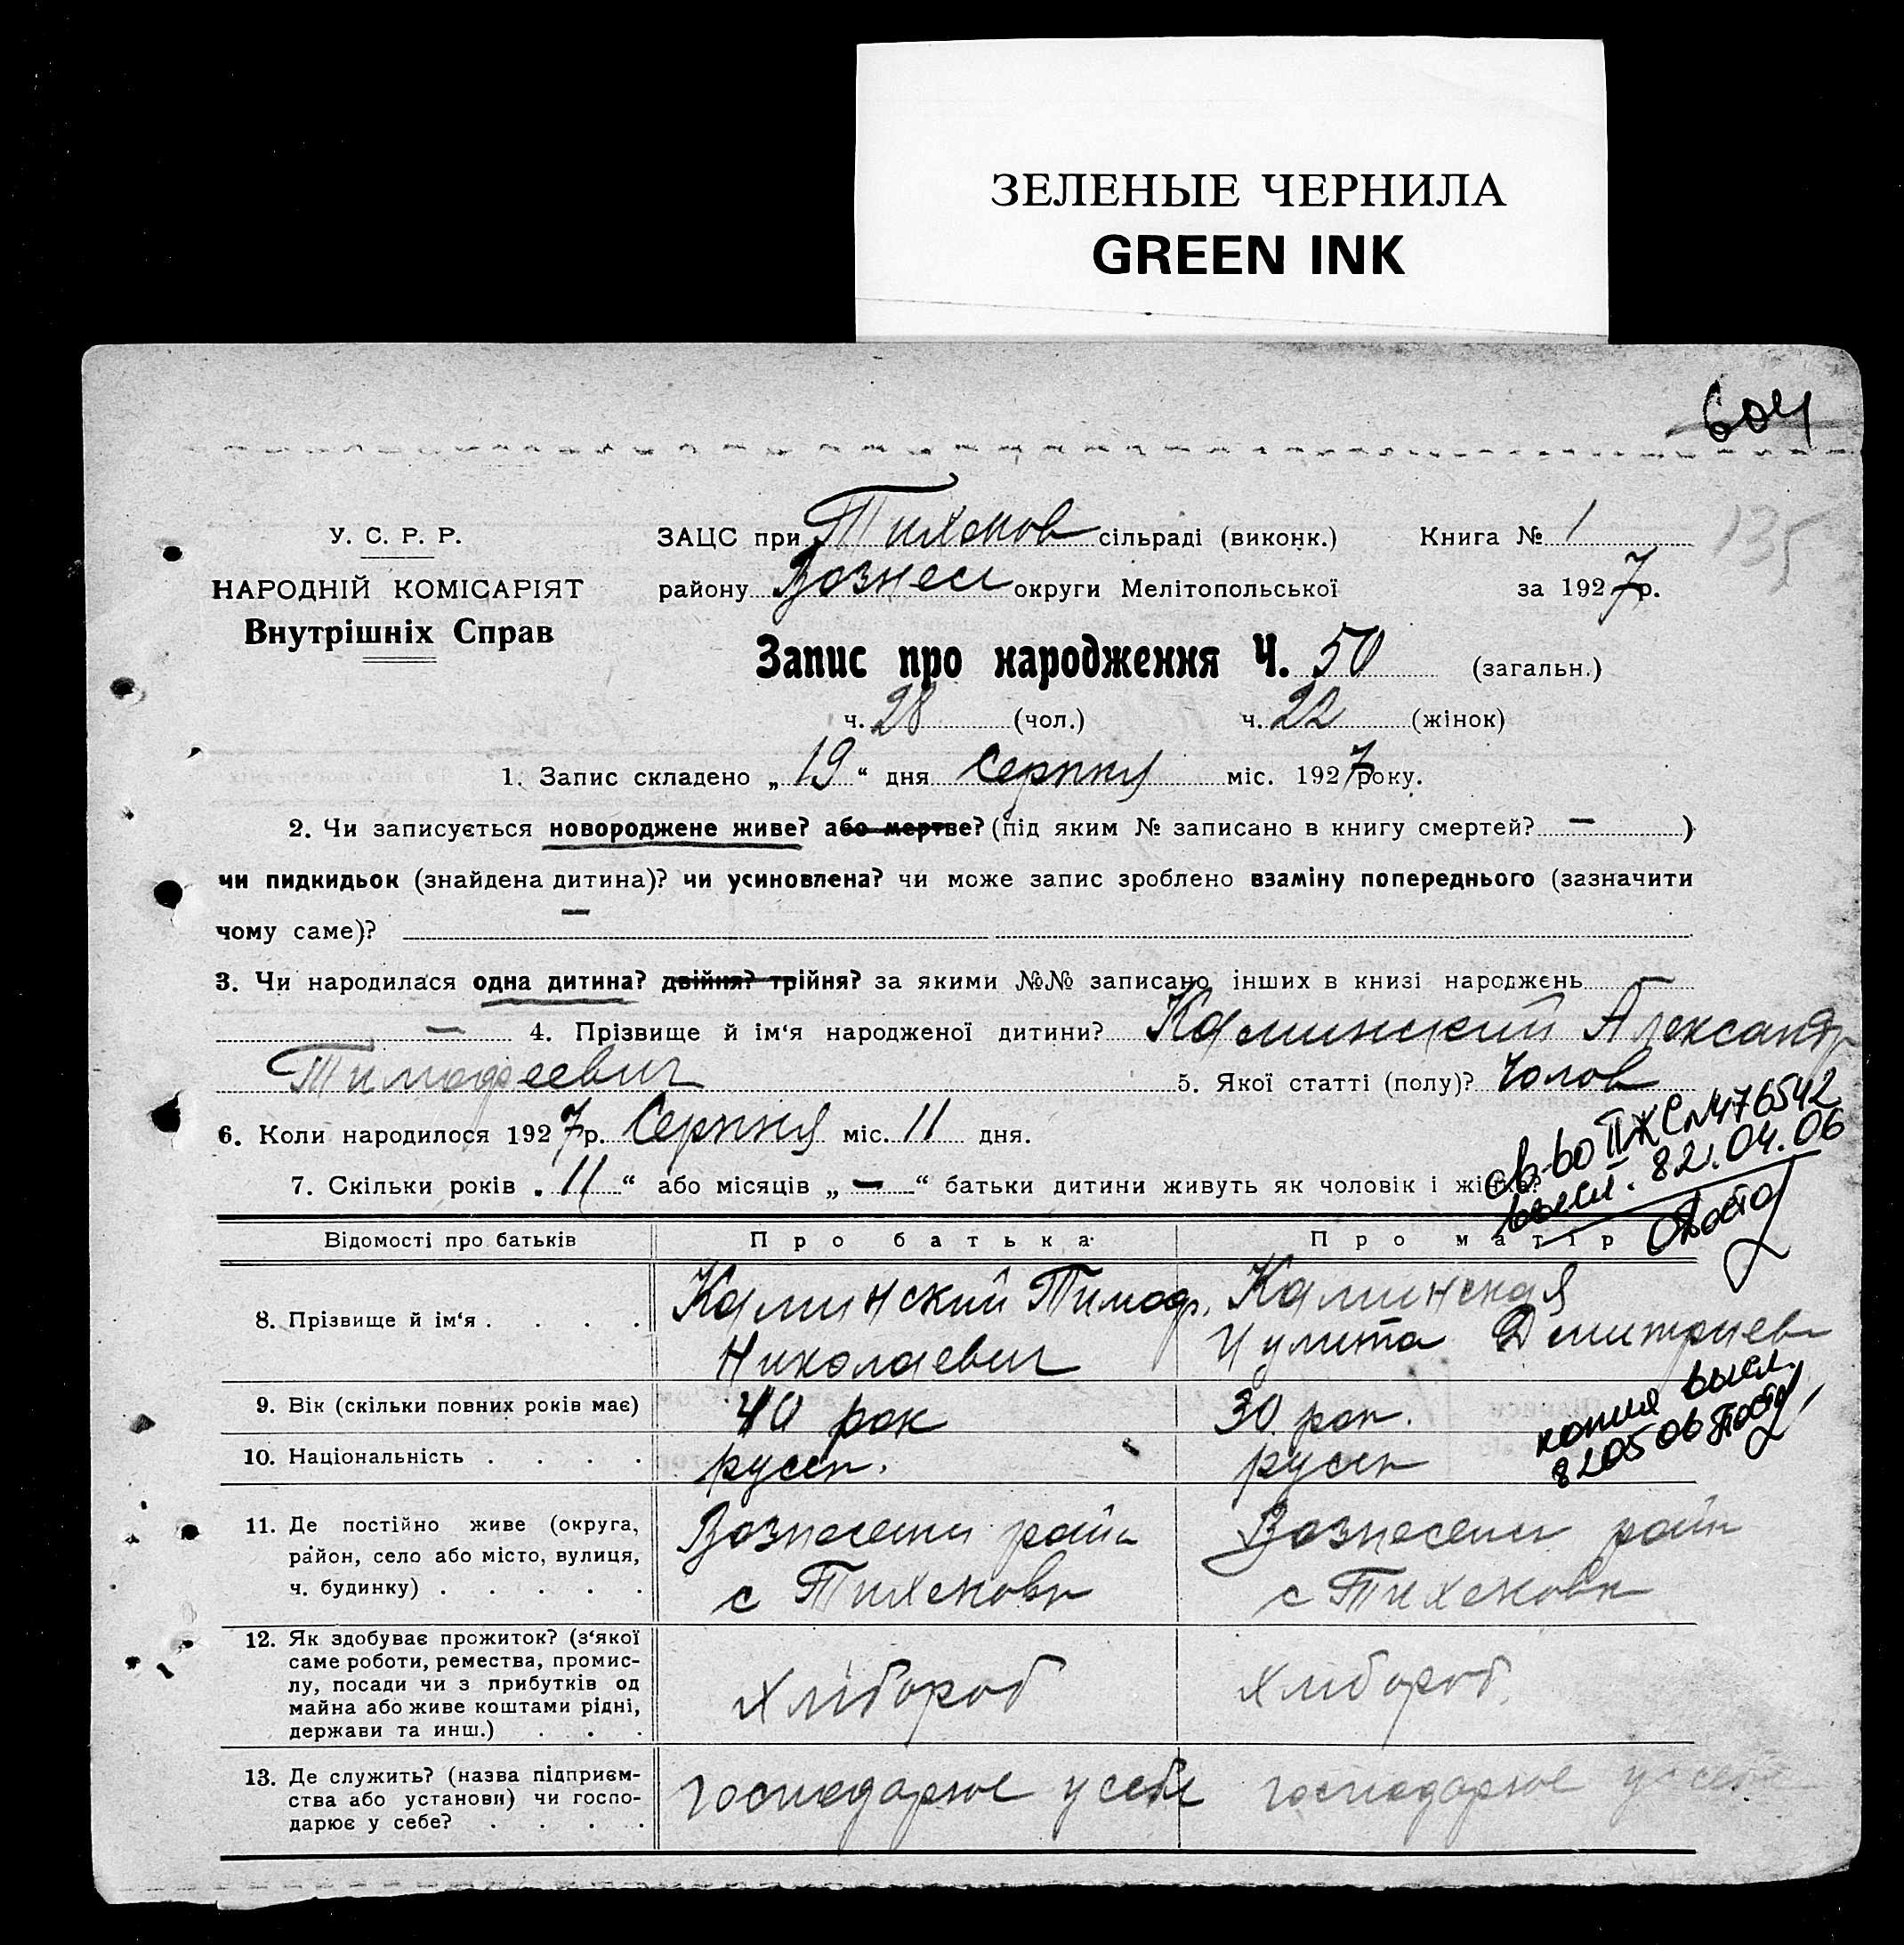 ЗЕЛЕНЫЕ ЧЕРНИЛА
GREEN INK
604
135
У. С. Р. Р.
НАРОДНІЙ КОМІСАРІЯТ
Внутрішніх Справ
ЗАЦС при Тихонов сільраді (виконк.) Книга № 1
району Вознесен округи Мелітопольської за 1927 р.
Запис про народження Ч. 50 (загальн.)
ч. 28 (чол.) ч. 22 (жінок)
1. Запис складено „19“ дня Серпня міс. 1927 року.
2. Чи записується новороджене живе? або мертве? (під яким № записано в книгу смертей? — )
чи пидкидьок (знайдена дитина)? чи усиновлена? чи може запис зроблено взаміну попереднього (зазначити
чому саме)? —
3. Чи народилася одна дитина? двійня? трійня? за якими №№ записано інших в книзі народжень —
— 4. Прізвище й ім‘я народженої дитини? Калинский Александр
Тимофеевич 5. Якої статті (полу)? Чолов
6. Коли народилося 1927 р. Серпня міс. 11 дня.
7. Скільки років „11“ або місяців „—“ батьки дитини живуть як чоловік і жінка?
св-во ІІ ЖС № 476542
высл. 82.04.06
Відомості про батьків Про батька Про матір
8. Прізвище й ім‘я . . . . Калинский Тимоф. Николаевич Калинская Улита Дмитриев
9. Вік (скільки повних років має) 40 рок 30 рок.
10. Національність . . . . русск. русск
копия высл.
820506
11. Де постійно живе (округа,
район, село або місто, вулиця,
ч. будинку) . . . . .
Вознесенск район
с Тихоновк
Вознесенск район
с Тихоновк
12. Як здобуває прожиток? (з‘якої
саме роботи, ремества, промис-
лу, посади чи з прибутків од
майна або живе коштами рідні,
держави та инш.) . . .
хлібороб хлібороб
13. Де служить? (назва підприєм-
ства або установи) чи госпо-
дарює у себе? . . . .
господарює у себе господарює у себе